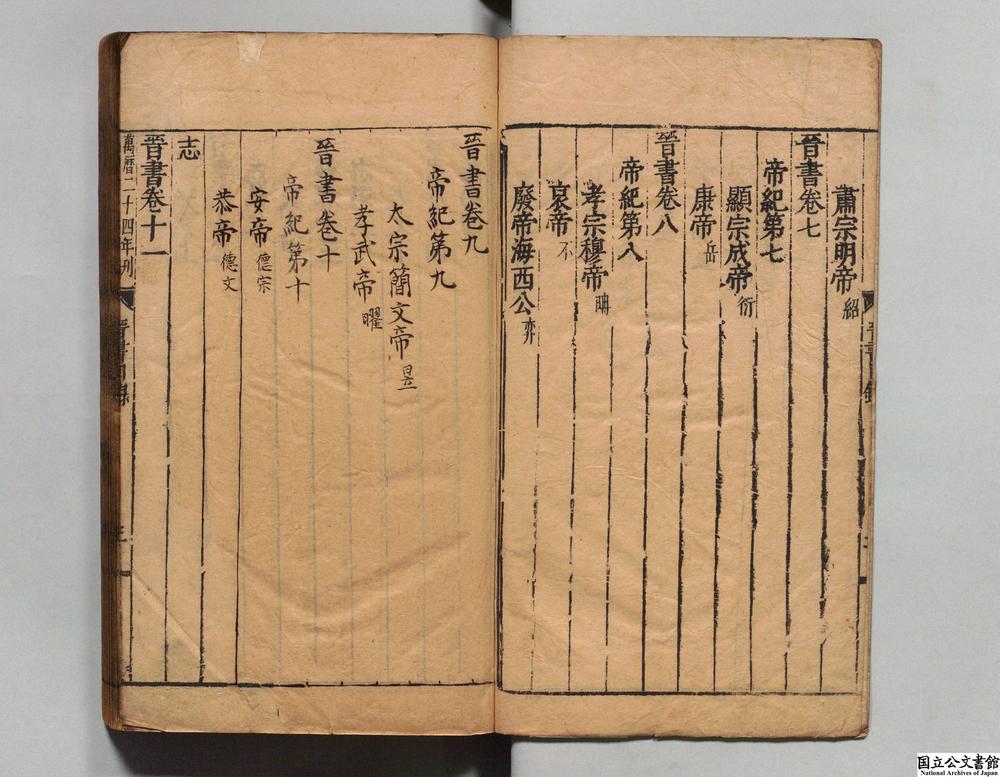 肅宗明帝 紹
晉書卷七
帝紀第七
顯宗成帝 衍
康帝 岳
晉書卷八
帝紀第八
孝宗穆帝 聃
哀帝 丕
廢帝海西公 弈
晉書卷九
帝紀第九
太宗簡文帝 昱
孝武帝 曜
晉書卷十
帝紀第十
安帝 德宗
恭帝 德文
志
晉書卷十一
萬曆二十四年刋
晉書目錄
国立公文書館
National Archives of Japan